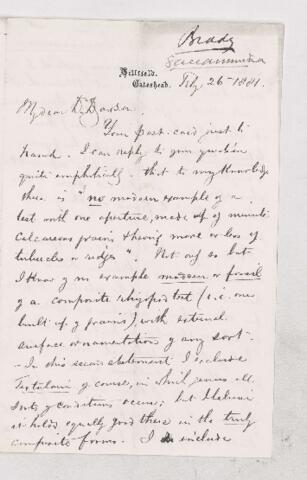 Brady
Saccammina
Hillfield.
Gateshead.
Feby 26 1881.
My dear Dr Dawson
Your Post-card just to
hand. I can reply to your question
quite emphatically - that to my knowledge
there is "no modern example of a
test with one aperture, made up of minute
calcareous grains & having more or less of
tubercles or ridges". Not only so but
I know of no example modern or fossil
of a composite rhizopod test (i.e. one
built up of grains), with external
surface ornamentation of any sort.
- In this second statement I exclude
Textularia of course, in which genus all
sorts of conditions occur; but I believe
it holds equally good there in the truly
composite forms. I include